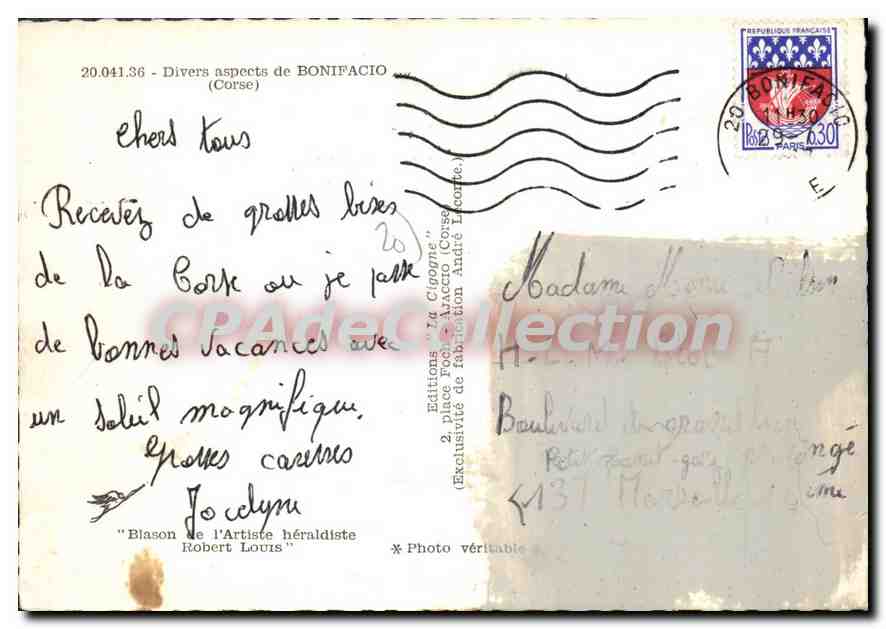 20.041.36 - Divers aspects de BONIFACIO
(Corse)
Chers tous
Recevez de grosses bises
de la Corse ou je passe
de bonnes vacances avec
un soleil magnifique.
Grosses caresses
Jocelyne
20
"Blason de l'Artiste héraldiste
Robert LOUIS"
Editions "La Cigogne"
2, place Foch - AJACCIO (Corse)
(Exclusivité de fabrication André Leconte.)
* Photo véritable
REPUBLIQUE FRANÇAISE
Postes 0,30
PARIS
20 BONIFACIO
11H30
29-7
Madame
Boulevard du
Petit
Marseille
CPAdeCollection